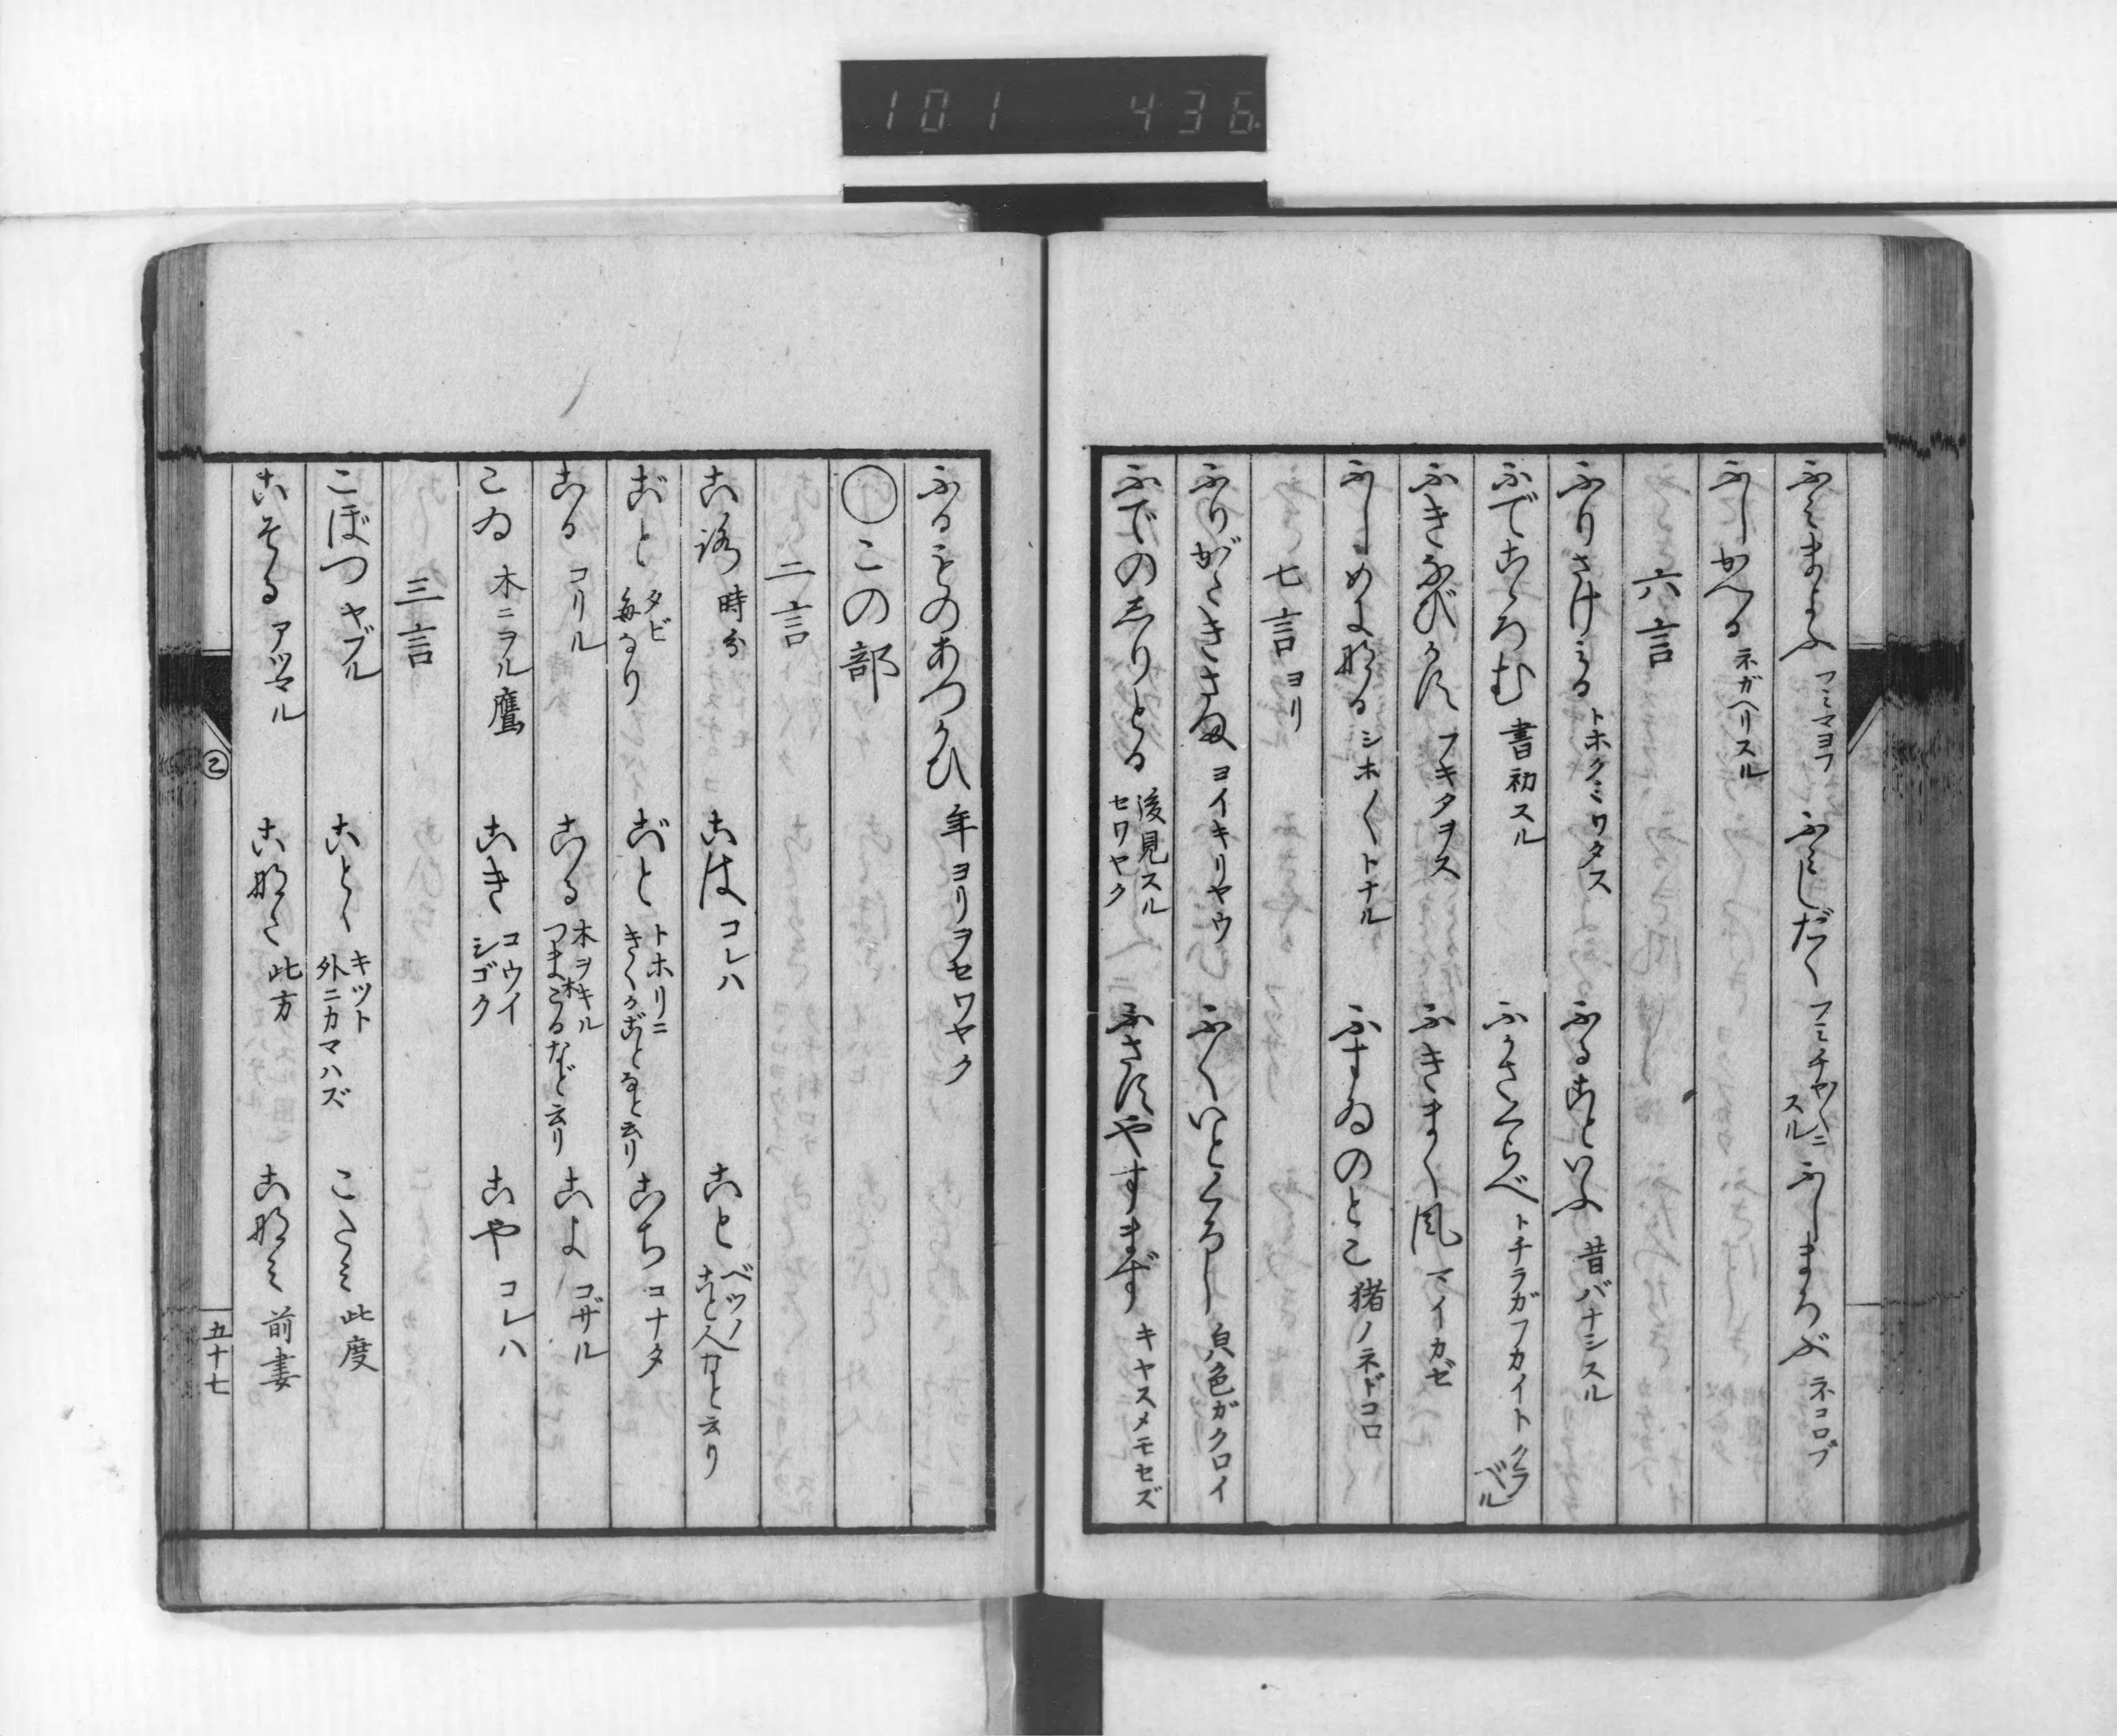 101 436
ふみまよふ フミマヨフ ふみしだく フミチヤ〱ニスル ふしまろぶ ネコロブ
ふしかへる ネガヘリスル
六言
ふりさけみる トホクミワタス ふることいふ 昔バナシスル
ふでこゝろむ 書初スル ふかさくらべ トチラガフカイトクラベル
ふきなびかす フキタヲス ふきまく風 マイカゼ
ふしめになる シホ〱トナル ふすゐのとこ 猪ノネドコロ
七言ヨリ
ふりがたきさま ヨイキリヤウ ふくいところし 臭色ガクロイ
ふでのしりとる 後見スル セワヤク ふさにやすまず キヤスメモセズ
ふるものあつかひ 年ヨリヲセワヤク
○この部
二言
ころ 時分 こは コレハ こと ベツノ こと人などと云り
ごと タビ 毎なり ごと トホリニ きくがごとなと云り こち コナタ
こる コリル こる 木ヲキル つま木こるなど云り こよ コザル
こゐ 木ニヲル鷹 こき コウイ シゴク こや コレハ
三言
こぼつ ヤブル こと〱 キツト 外ニカマハズ こたみ 此度
こぞる アツマル こなた 此方 こなみ 前妻
こ
五十七